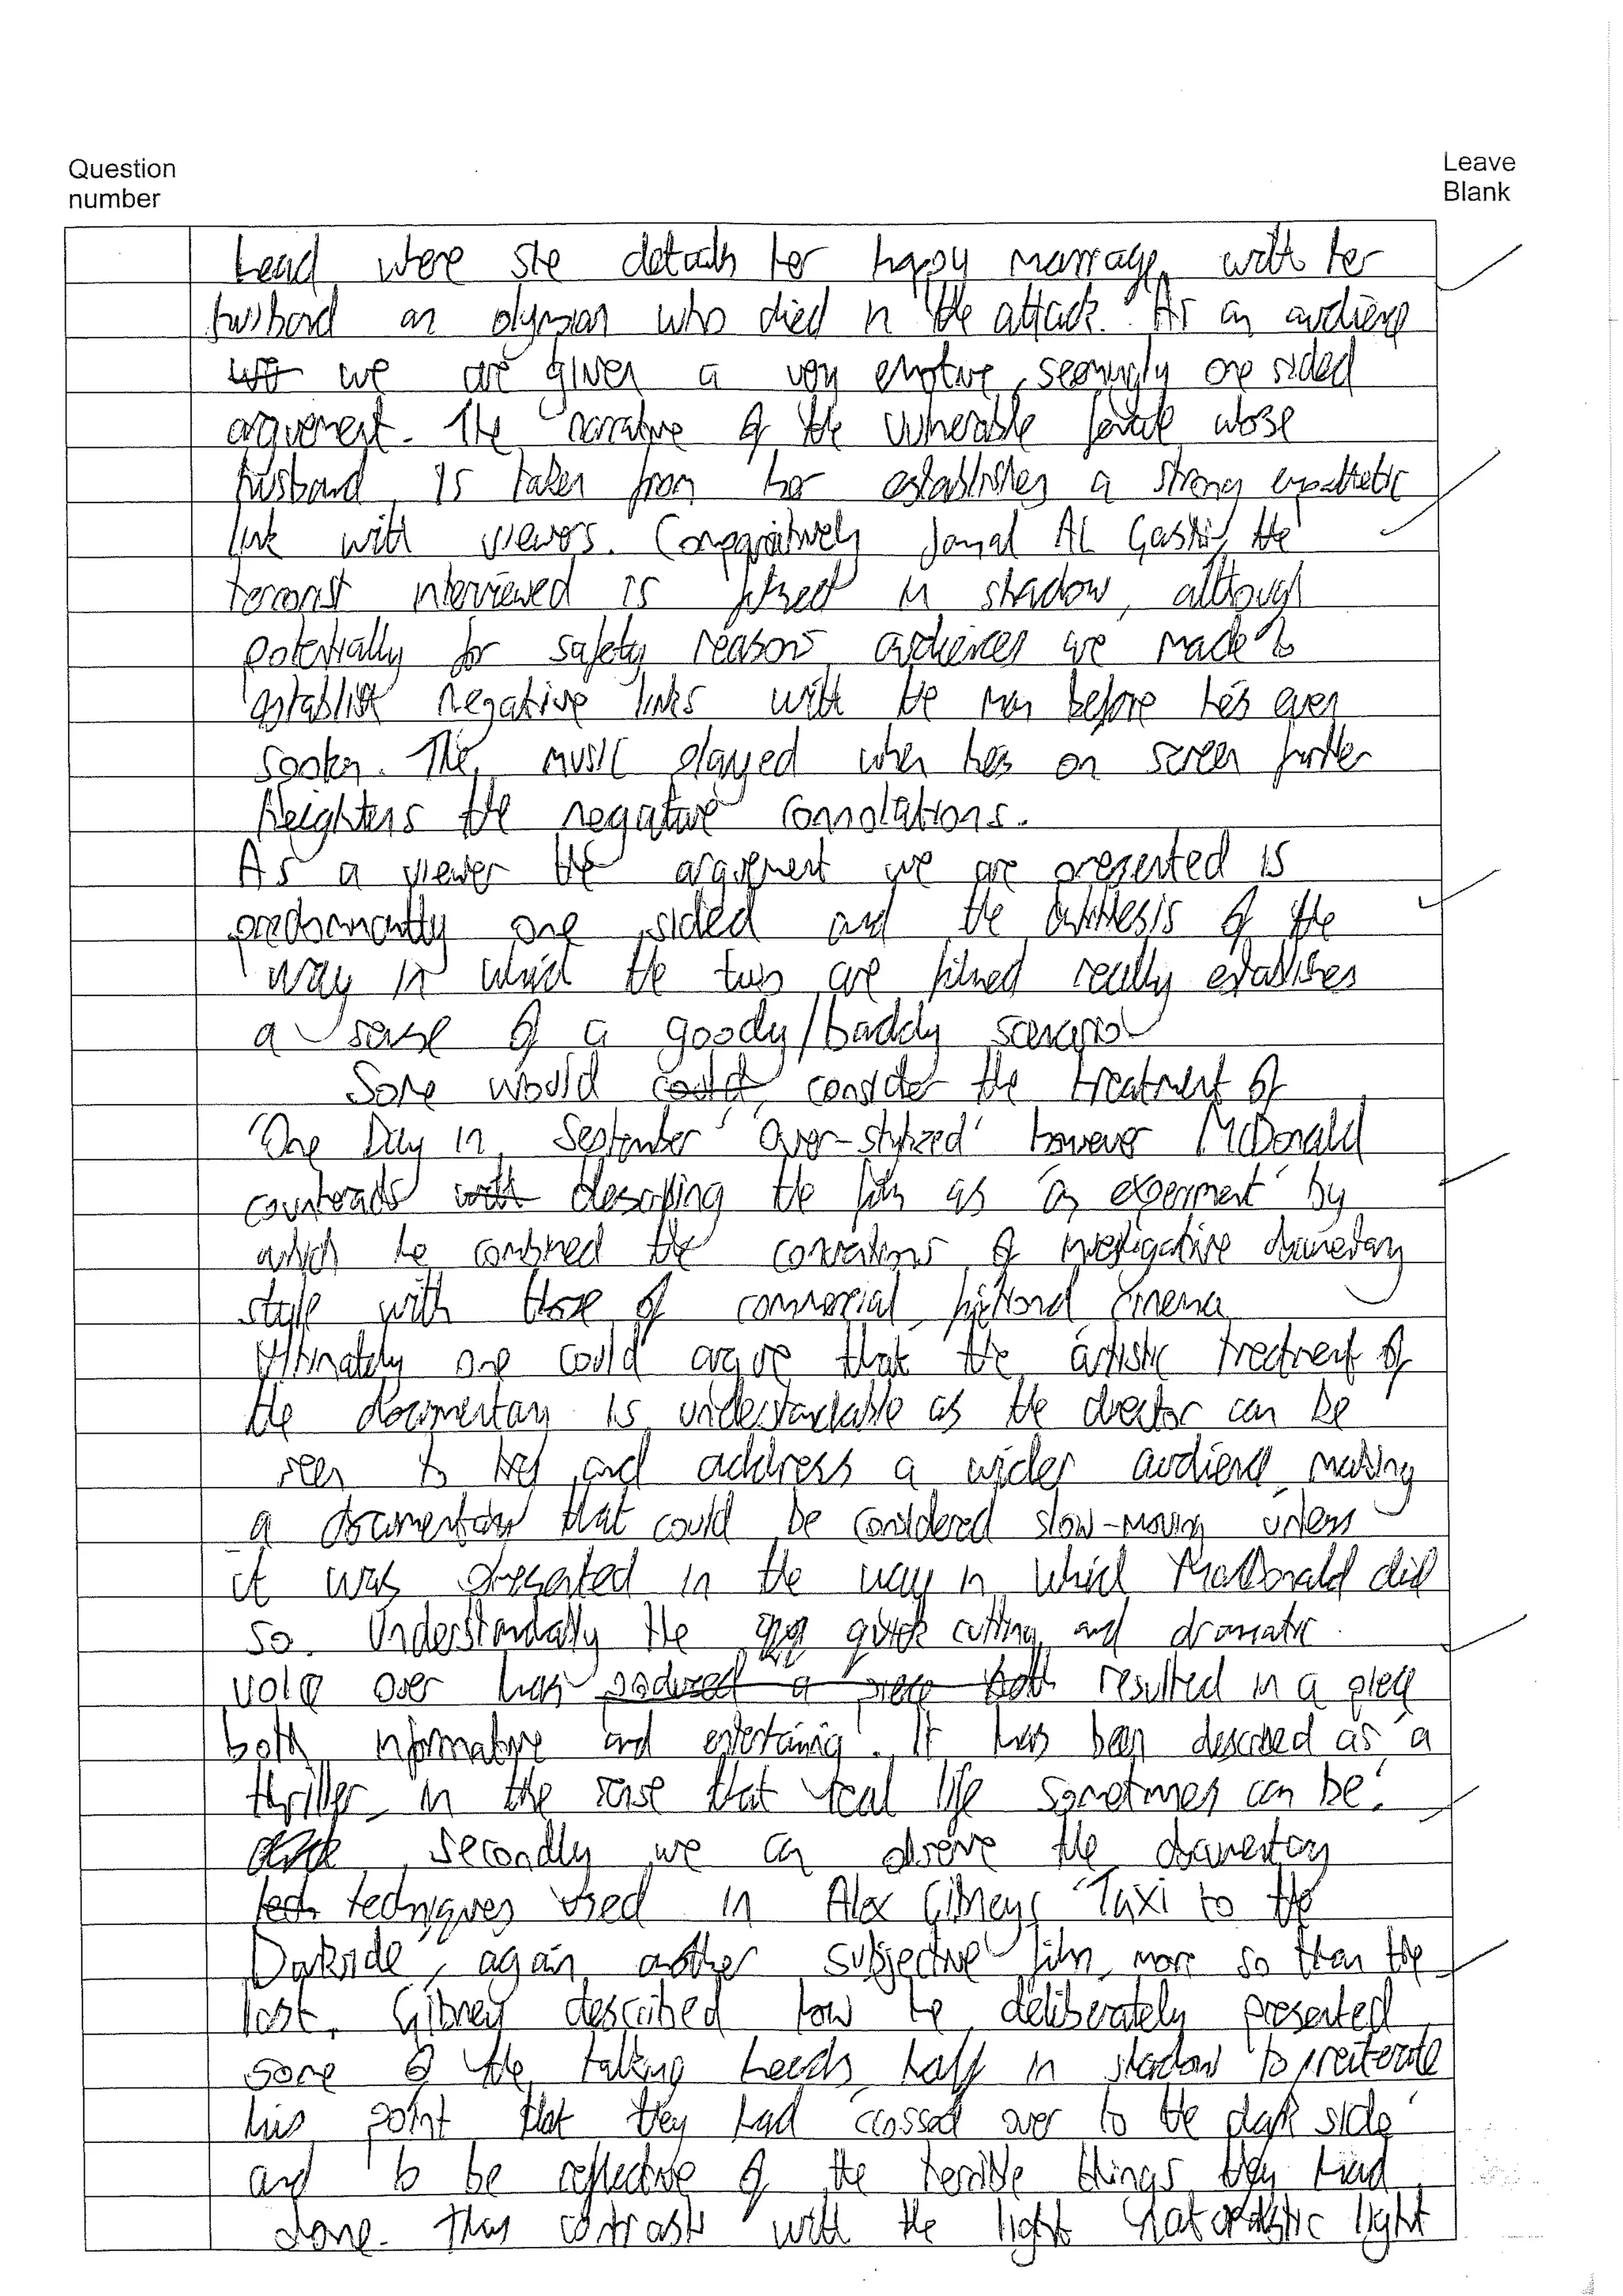 Question
number
Leave
Blank
head where she details her happy marriage with her
husband an olympian who died in the attack. As an audience
we are given a very emotive, seemingly one sided
arguement. The narrative of the vulnerable female whose
husband is taken from her establishes a strong empathetic
link with viewers. Comparitively Jamal AL Gashiy, the
terrorist interviewed is filmed in shadow, although
potentially for safety reasons audiences are made to
establish negative links with the man before he's even
spoken. The music played when he's on screen further
heightens the negative connotations.
As a viewer the arguement we are presented is
predominantly one sided and the antithesis of the
way in which the two are filmed really establishes
a sense of a goody/baddy scenario
Some would could consider the treatment of
'One Day in September' 'over-stylized' however McDonald
counteracts with describing the film as 'an experiment' by
which he combined the conventions of investigative documentary
style with those of commercial fictional cinema
Ultimately one could argue that the artistic treatment of
the documentary is understandable as the director can be
seen to try and address a wider audience making
a documentary that could be considered slow-moving unless
it was presented in the way in which McDonald did
so. Understandably the quick cutting and dramatic
voice over has produced a piece both resulted in a piece
both informative and entertaining. It has been described as 'a
thriller in the sense that real life sometimes can be.'
Secondly we can observe the documentary
tech techniques used in Alex Gibneys 'Taxi to the
Darkside', again another subjective film, more so than the
last. Gibney described how he deliberately presented
some of the talking heads half in shadow 'to reiterate
his point that they had crossed over to the dark side'
and to be reflective of the terrible things they had
done. This contrasts with the light naturalistic light